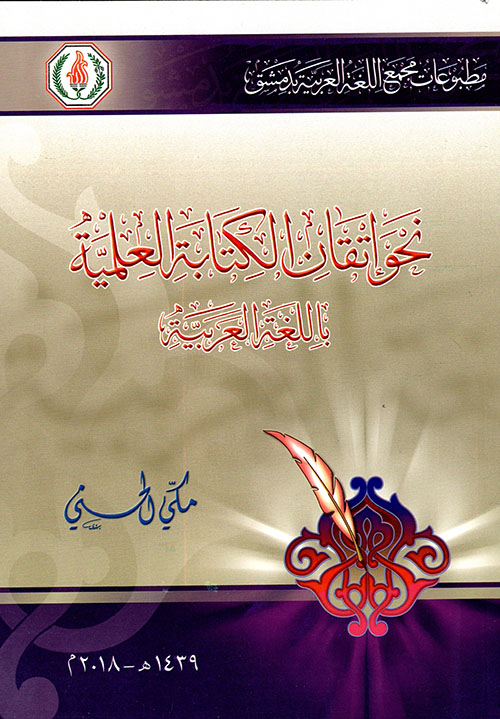 مطبوعات مجمع اللغة العربية بدمشق
نحو إتقان الكتابة العلمية
باللغة العربية
مكي الحسني
١٤٣٩ هـ - ٢٠١٨ م